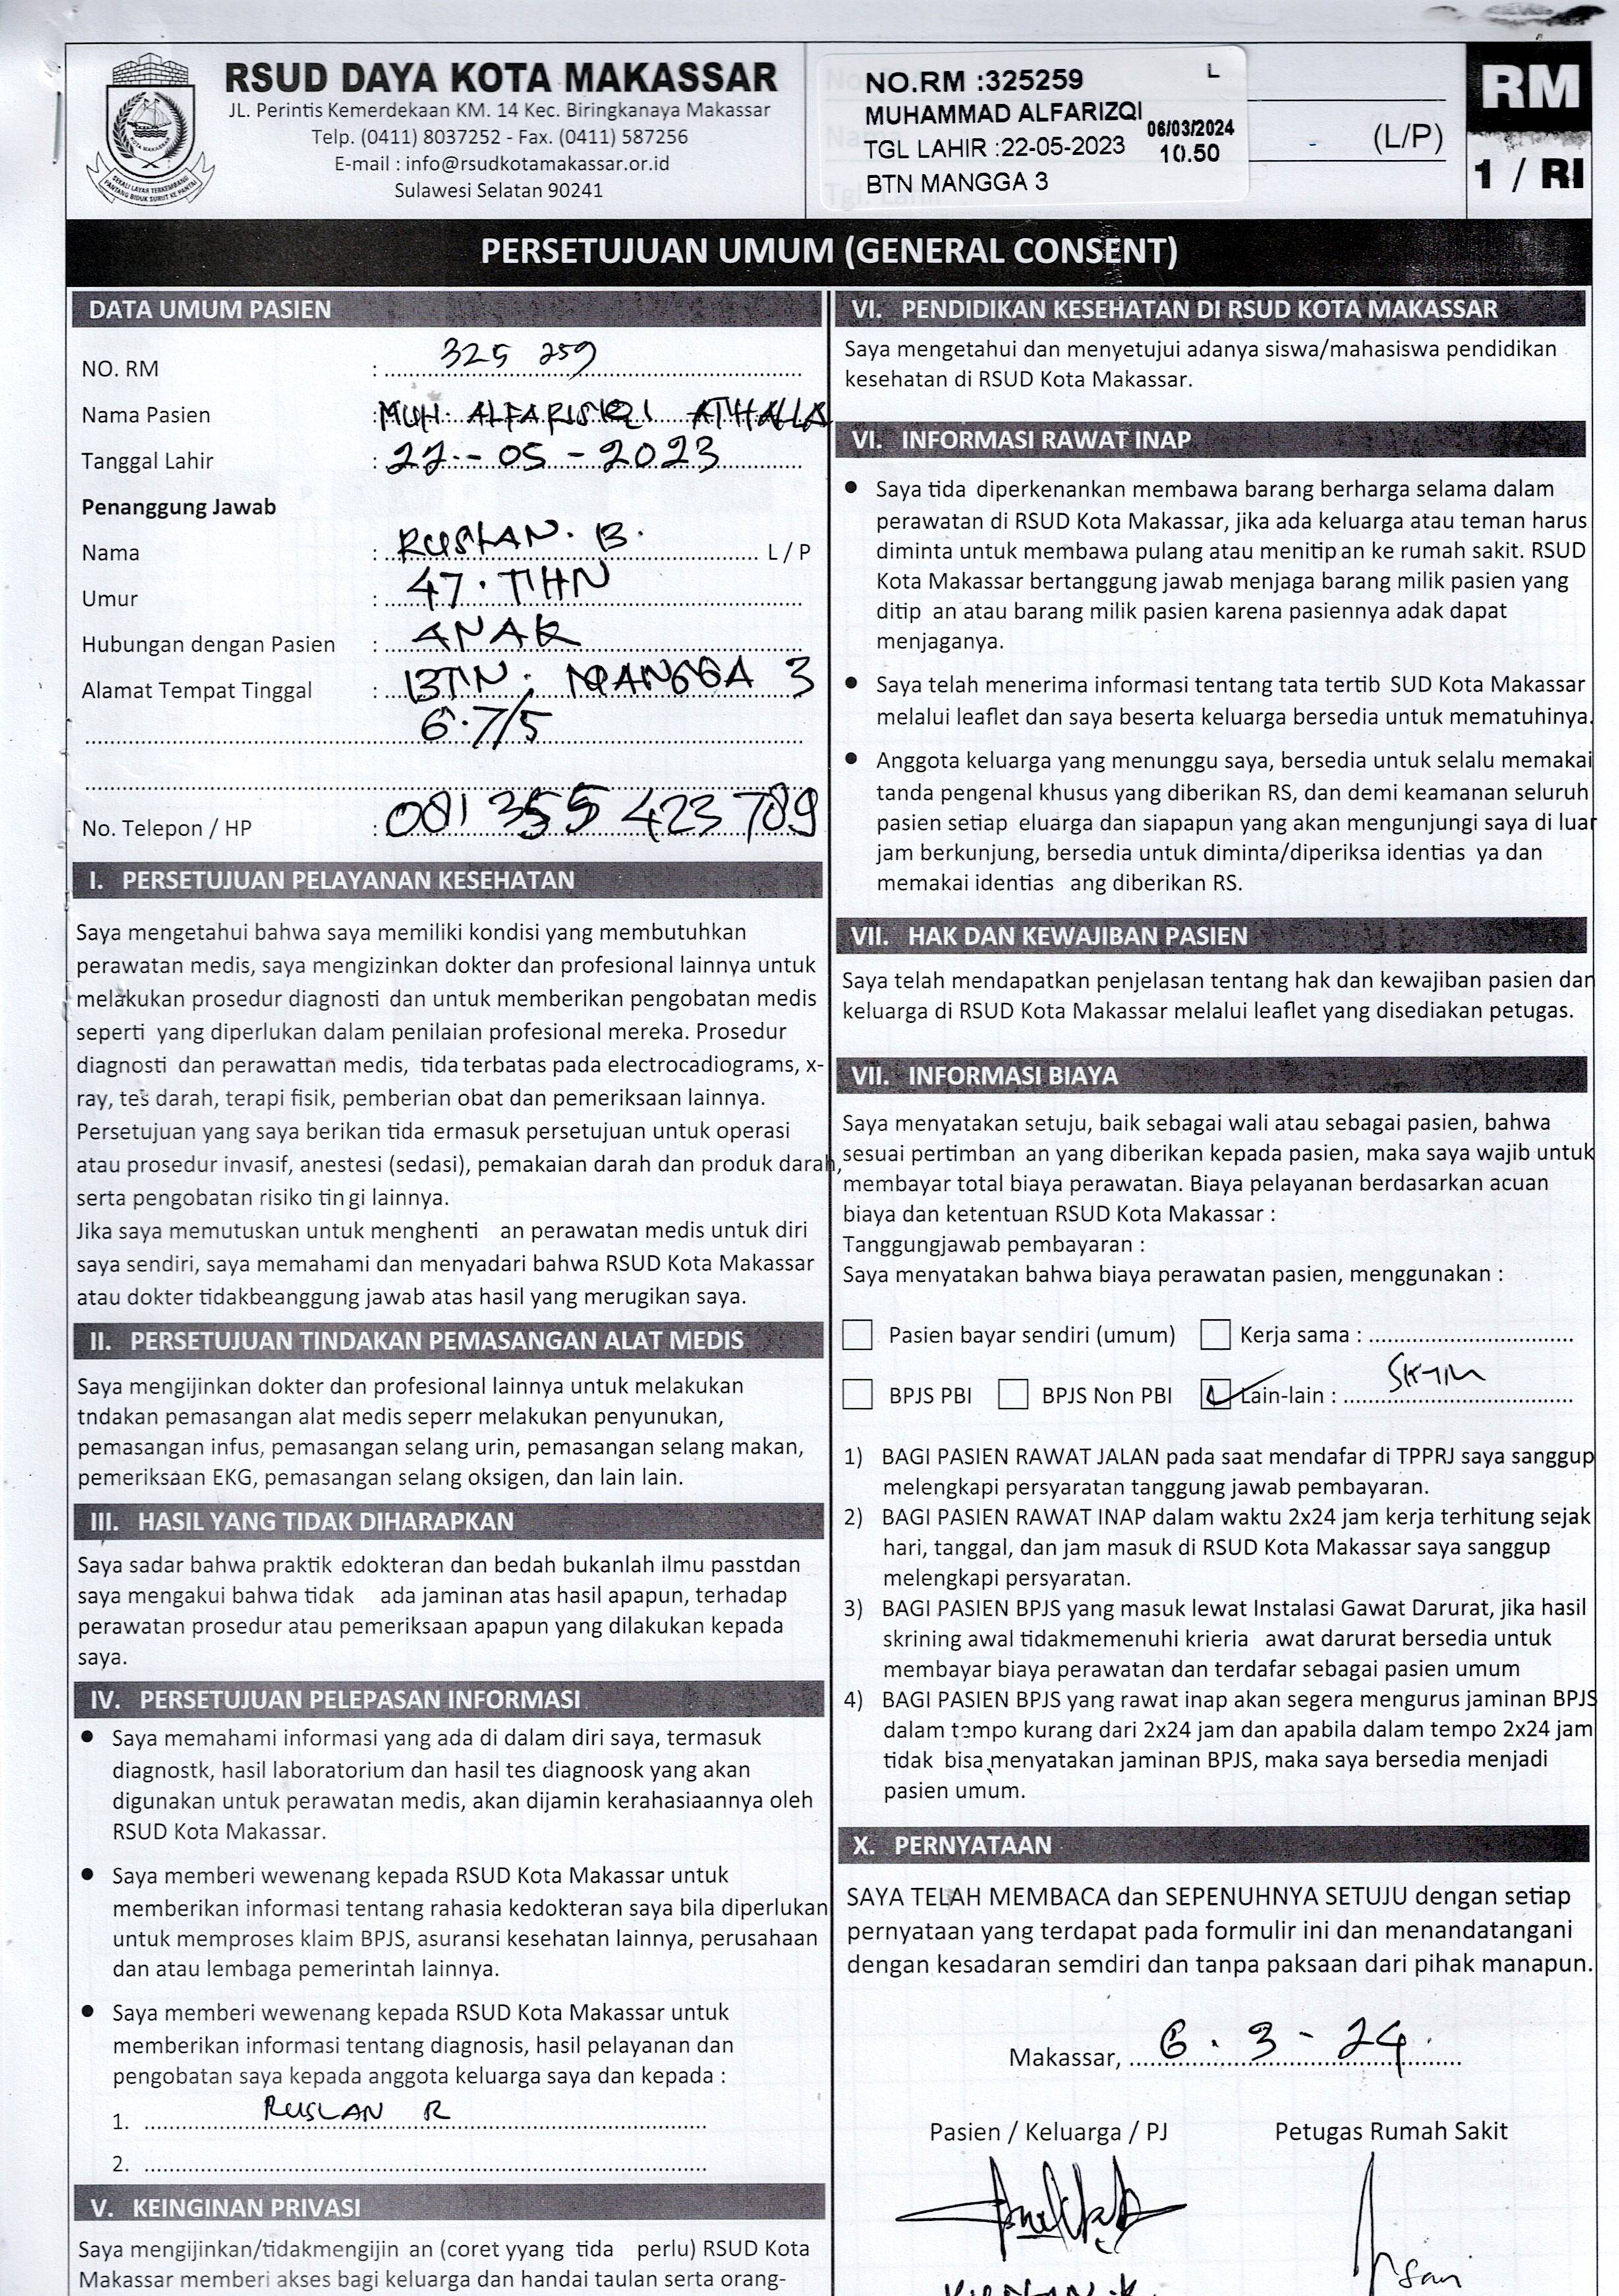 RSUD DAYA KOTA MAKASSAR
JL. Perintis Kemerdekaan KM. 14 Kec. Biringkanaya Makassar
Telp. (0411) 8037252 - Fax. (0411) 587256
E-mail : info@rsudkotamakassar.or.id
Sulawesi Selatan 90241
NO.RM :325259 L
MUHAMMAD ALFARIZQI
TGL LAHIR :22-05-2023
06/03/2024
10.50
BTN MANGGA 3
(L/P)
RM
1 / RI
PERSETUJUAN UMUM (GENERAL CONSENT)
DATA UMUM PASIEN
NO. RM : 325 259
Nama Pasien : MUH. ALFARISKI ATHALLA
Tanggal Lahir : 22 - 05 - 2023
Penanggung Jawab
Nama : RUSLAN. B. L / P
Umur : 47. THN
Hubungan dengan Pasien : ANAK
Alamat Tempat Tinggal : BTN. MANGGA 3
6.7/5
No. Telepon / HP : 081 355 423 789
I. PERSETUJUAN PELAYANAN KESEHATAN
Saya mengetahui bahwa saya memiliki kondisi yang membutuhkan
perawatan medis, saya mengizinkan dokter dan profesional lainnya untuk
melakukan prosedur diagnosti dan untuk memberikan pengobatan medis
seperti yang diperlukan dalam penilaian profesional mereka. Prosedur
diagnosti dan perawattan medis, tida terbatas pada electrocadiograms, x-
ray, tes darah, terapi fisik, pemberian obat dan pemeriksaan lainnya.
Persetujuan yang saya berikan tida ermasuk persetujuan untuk operasi
atau prosedur invasif, anestesi (sedasi), pemakaian darah dan produk darah,
serta pengobatan risiko tin gi lainnya.
Jika saya memutuskan untuk menghenti an perawatan medis untuk diri
saya sendiri, saya memahami dan menyadari bahwa RSUD Kota Makassar
atau dokter tidakbeanggung jawab atas hasil yang merugikan saya.
II. PERSETUJUAN TINDAKAN PEMASANGAN ALAT MEDIS
Saya mengijinkan dokter dan profesional lainnya untuk melakukan
tndakan pemasangan alat medis seperr melakukan penyunukan,
pemasangan infus, pemasangan selang urin, pemasangan selang makan,
pemeriksaan EKG, pemasangan selang oksigen, dan lain lain.
III. HASIL YANG TIDAK DIHARAPKAN
Saya sadar bahwa praktik edokteran dan bedah bukanlah ilmu passtdan
saya mengakui bahwa tidak ada jaminan atas hasil apapun, terhadap
perawatan prosedur atau pemeriksaan apapun yang dilakukan kepada
saya.
IV. PERSETUJUAN PELEPASAN INFORMASI
• Saya memahami informasi yang ada di dalam diri saya, termasuk
diagnostk, hasil laboratorium dan hasil tes diagnoosk yang akan
digunakan untuk perawatan medis, akan dijamin kerahasiaannya oleh
RSUD Kota Makassar.
• Saya memberi wewenang kepada RSUD Kota Makassar untuk
memberikan informasi tentang rahasia kedokteran saya bila diperlukan
untuk memproses klaim BPJS, asuransi kesehatan lainnya, perusahaan
dan atau lembaga pemerintah lainnya.
• Saya memberi wewenang kepada RSUD Kota Makassar untuk
memberikan informasi tentang diagnosis, hasil pelayanan dan
pengobatan saya kepada anggota keluarga saya dan kepada :
1. RUSLAN R
2.
V. KEINGINAN PRIVASI
Saya mengijinkan/tidakmengijin an (coret yyang tida perlu) RSUD Kota
Makassar memberi akses bagi keluarga dan handai taulan serta orang-
VI. PENDIDIKAN KESEHATAN DI RSUD KOTA MAKASSAR
Saya mengetahui dan menyetujui adanya siswa/mahasiswa pendidikan
kesehatan di RSUD Kota Makassar.
VI. INFORMASI RAWAT INAP
• Saya tida diperkenankan membawa barang berharga selama dalam
perawatan di RSUD Kota Makassar, jika ada keluarga atau teman harus
diminta untuk membawa pulang atau menitip an ke rumah sakit. RSUD
Kota Makassar bertanggung jawab menjaga barang milik pasien yang
ditip an atau barang milik pasien karena pasiennya adak dapat
menjaganya.
• Saya telah menerima informasi tentang tata tertib SUD Kota Makassar
melalui leaflet dan saya beserta keluarga bersedia untuk mematuhinya.
• Anggota keluarga yang menunggu saya, bersedia untuk selalu memakai
tanda pengenal khusus yang diberikan RS, dan demi keamanan seluruh
pasien setiap eluarga dan siapapun yang akan mengunjungi saya di luar
jam berkunjung, bersedia untuk diminta/diperiksa identias ya dan
memakai identias ang diberikan RS.
VII. HAK DAN KEWAJIBAN PASIEN
Saya telah mendapatkan penjelasan tentang hak dan kewajiban pasien dan
keluarga di RSUD Kota Makassar melalui leaflet yang disediakan petugas.
VII. INFORMASI BIAYA
Saya menyatakan setuju, baik sebagai wali atau sebagai pasien, bahwa
sesuai pertimban an yang diberikan kepada pasien, maka saya wajib untuk
membayar total biaya perawatan. Biaya pelayanan berdasarkan acuan
biaya dan ketentuan RSUD Kota Makassar :
Tanggungjawab pembayaran :
Saya menyatakan bahwa biaya perawatan pasien, menggunakan :
Pasien bayar sendiri (umum) Kerja sama :
BPJS PBI BPJS Non PBI Lain-lain : SKTM
1) BAGI PASIEN RAWAT JALAN pada saat mendafar di TPPRJ saya sanggup
melengkapi persyaratan tanggung jawab pembayaran.
2) BAGI PASIEN RAWAT INAP dalam waktu 2x24 jam kerja terhitung sejak
hari, tanggal, dan jam masuk di RSUD Kota Makassar saya sanggup
melengkapi persyaratan.
3) BAGI PASIEN BPJS yang masuk lewat Instalasi Gawat Darurat, jika hasil
skrining awal tidakmemenuhi krieria awat darurat bersedia untuk
membayar biaya perawatan dan terdafar sebagai pasien umum
4) BAGI PASIEN BPJS yang rawat inap akan segera mengurus jaminan BPJS
dalam tempo kurang dari 2x24 jam dan apabila dalam tempo 2x24 jam
tidak bisa menyatakan jaminan BPJS, maka saya bersedia menjadi
pasien umum.
X. PERNYATAAN
SAYA TELAH MEMBACA dan SEPENUHNYA SETUJU dengan setiap
pernyataan yang terdapat pada formulir ini dan menandatangani
dengan kesadaran semdiri dan tanpa paksaan dari pihak manapun.
Makassar, 6 . 3 - 24.
Pasien / Keluarga / PJ Petugas Rumah Sakit